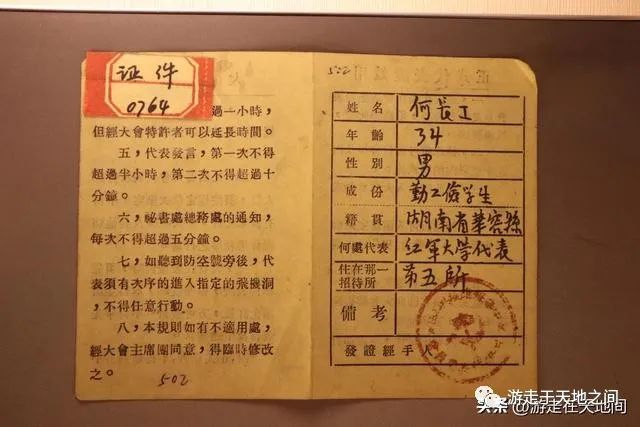 502
证件
0764
過一小時，
但經大會特許者可以延長時間。
五，代表發言，第一次不得
超過半小時，第二次不得超過十
分鐘。
六，祕書處總務處的通知，
每次不得超過五分鐘。
七，如聽到防空號旁後，代
表須有次序的進入指定的飛機洞
，不得任意行動。
八，本規則如有不適用處，
經大會主席團同意，得臨時修改
之。
502
姓名 何長工
年齡 34
性別 男
成份 勤工儉学生
籍貫 湖南省華容縣
何處代表 红軍大学代表
住在那一招待所 第五所
備考
發證經手人
游走于天地之间
头条@游走在天地间